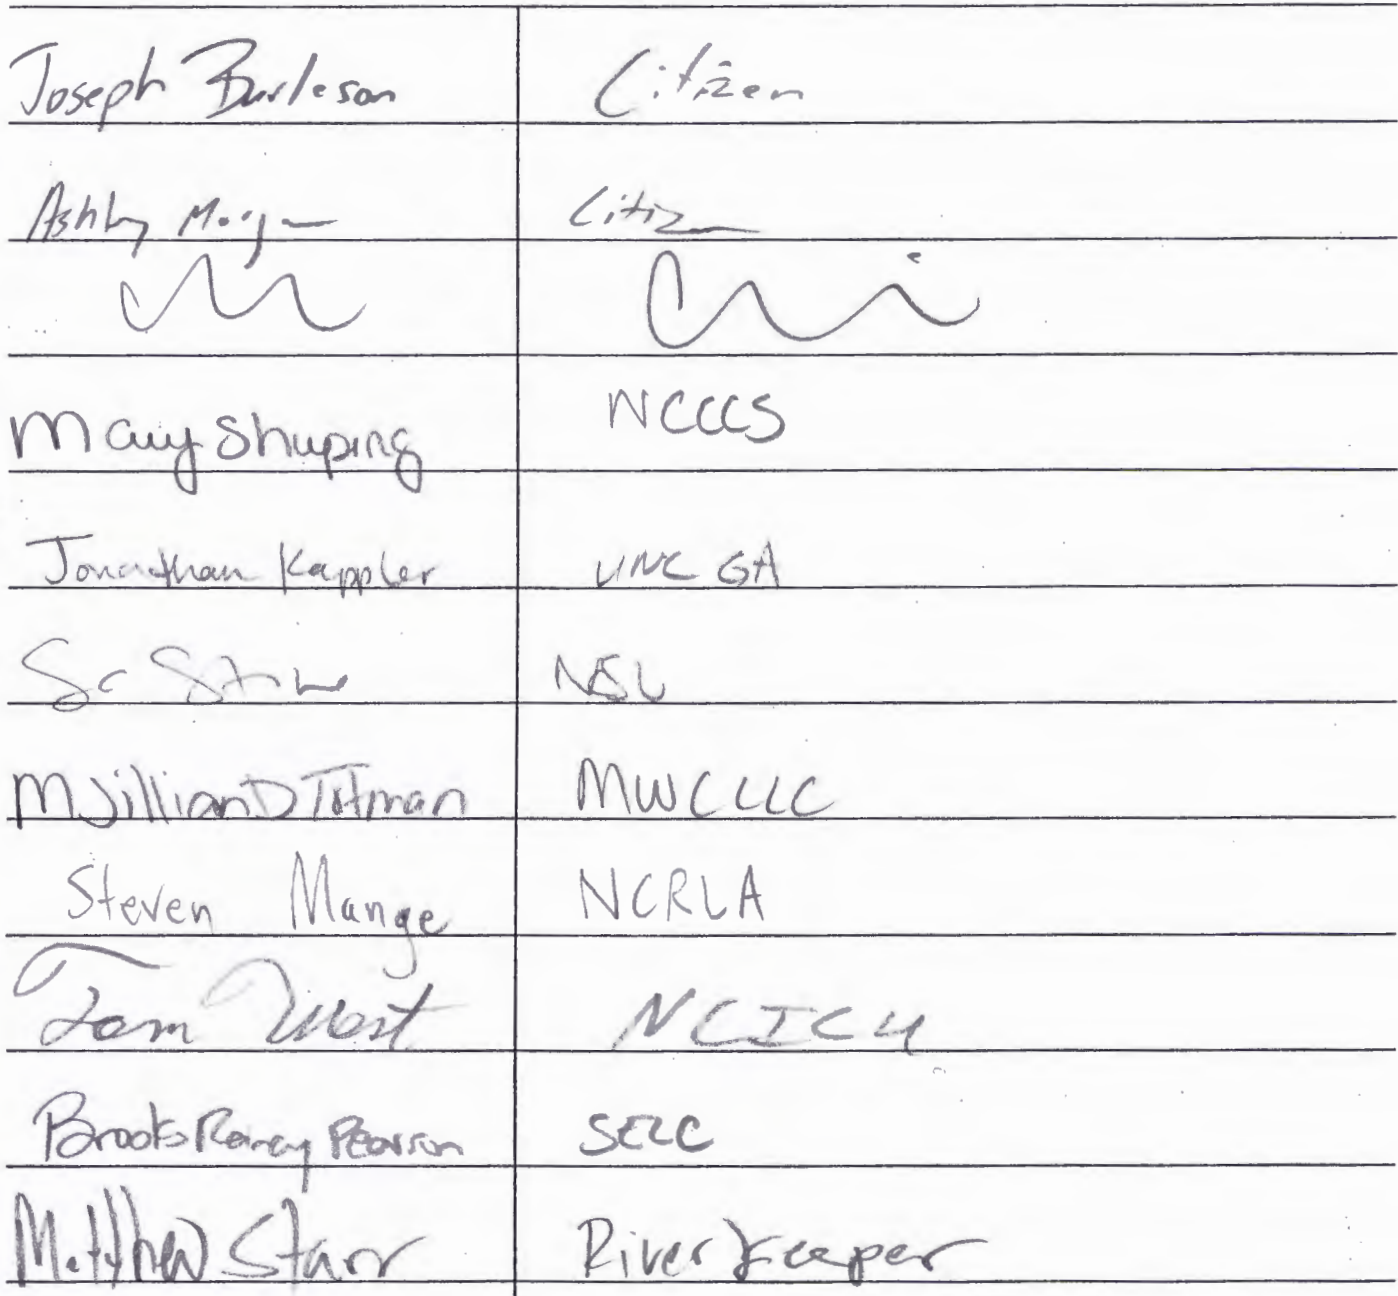 Joseph Burleson Citizen
Ashley Morgan Citizen
Mary Shuping NCCCS
Jonathan Kappler UNC GA
MJillianD Totman MWCLLC
Steven Mange NCRLA
Tom West NCICU
Brooks Rainey Pearson SELC
Matthew Starr RiverKeeper